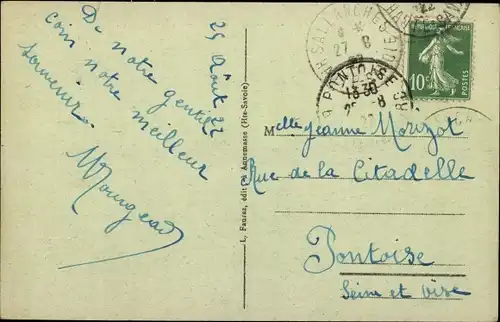 25 Août 22
De notre gentil
coin notre meilleur
souvenir.
L. Fauraz, édit. à Annemasse (Hte-Savoie)
SALLANCHES
27 - 8
HAUTE SAVOIE
22
PONTOISE
18 30
8
REPUBLIQUE FRANÇAISE
10c
POSTES
Melle Jeanne Morizot
Rue de la Citadelle
Pontoise
Seine et Oise